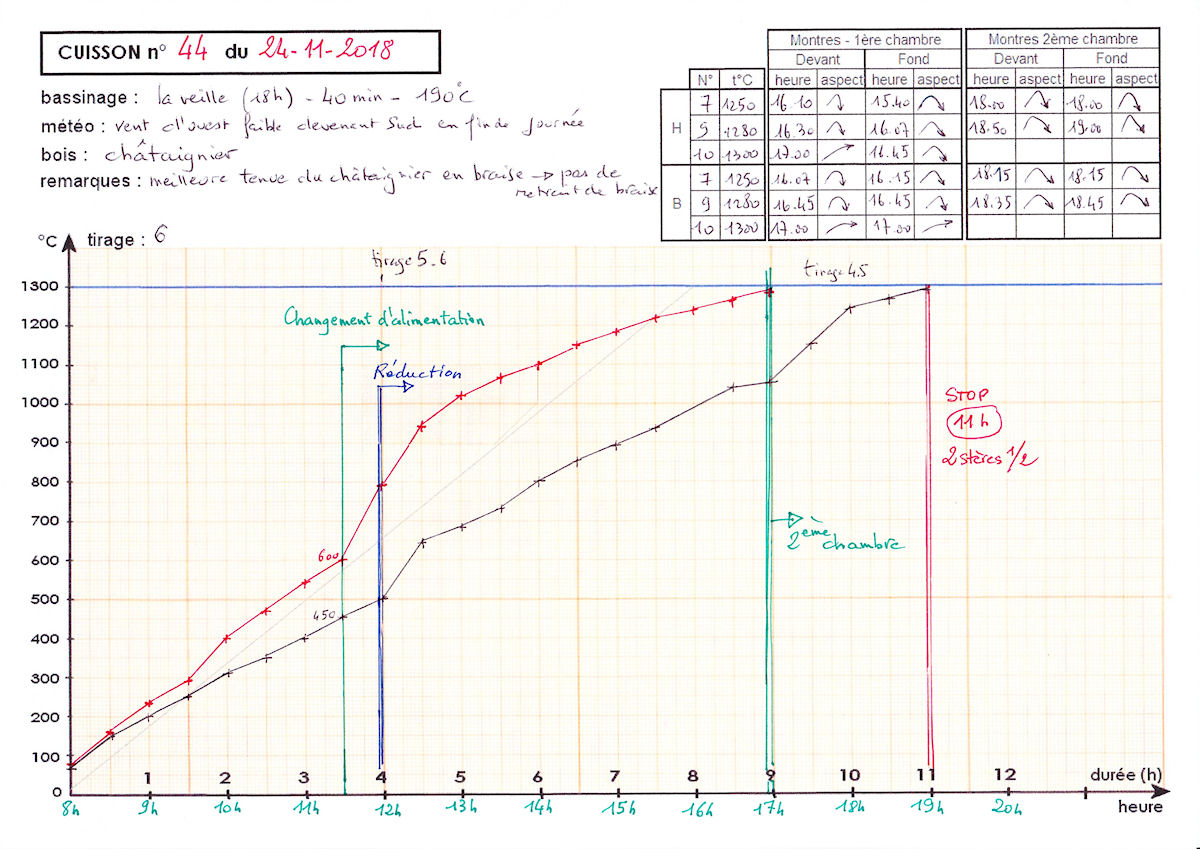 CUISSON n° 44 du 24-11-2018
bassinage : la veille (18h) - 40 min - 190°C
météo : vent d'ouest faible devenant Sud en fin de journée
bois : châtaignier
remarques : meilleure tenue du châtaignier en braise → pas de
retrait de braise
Montres - 1ère chambre Montres 2ème chambre
Devant Fond Devant Fond
N° t°C heure aspect heure aspect heure aspect heure aspect
H
7 1250 16.10 15.40 18.00 18.00
9 1280 16.30 16.07 18.50 19.00
10 1300 17.00 16.45
B
7 1250 16.07 16.15 18.15 18.15
9 1280 16.45 16.45 18.35 18.45
10 1300 17.00 17.00
°C tirage : 6
tirage 5.6
tirage 4.5
1300
1200
1100
1000
900
800
700
600
500
400
300
200
100
0
Changement d'alimentation
Réduction
STOP
11h
2 stères 1/2
2ème chambre
600
450
1 2 3 4 5 6 7 8 9 10 11 12 durée (h)
8h 9h 10h 11h 12h 13h 14h 15h 16h 17h 18h 19h 20h heure